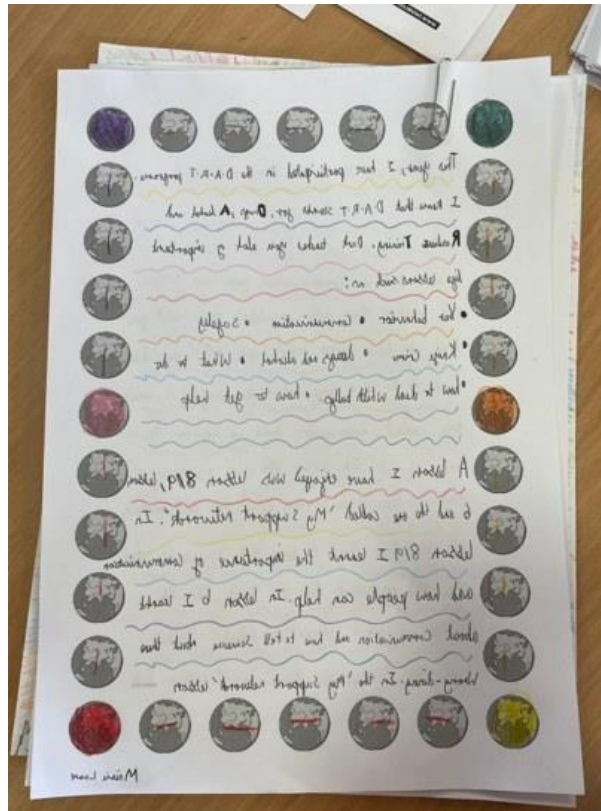 This year, I have participated in the D.A.R.T program.
I know that D.A.R.T stands for, Alcohol and
Training. Dart teaches you alot of important
life lessons such as:
• behavior • Communication • Safety
• Knife Crime • and alcohol • What to do
• how to deal with • how to get help
A lesson I have enjoyed was lesson 8/9, lesson
6 and the one called 'My support network'. In
lesson 8/9 I learnt the importance of communication
and how people can help. In lesson 6 I learnt
about communication and how to tell someone about
wrong-doing. In the 'My support network' lesson